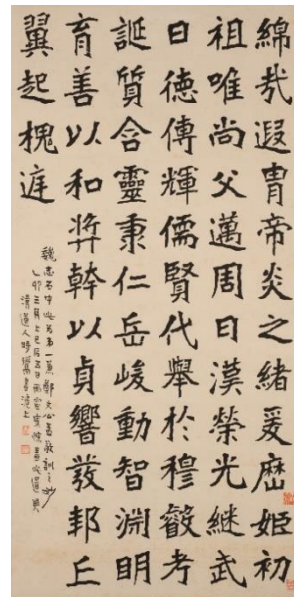 綿哉遐胄帝炎之緒爰歷姬初
祖唯尚父邁周曰漢榮光継武
日德傳輝儒賢代舉於穆叡考
誕質含靈秉仁岳峻動智淵明
育善以和奨幹以貞響發邦丘
翼起槐庭
魏志石中此為第一兼鄭文公
乙卯三月上巳後五日
清道人時鬻書滬上